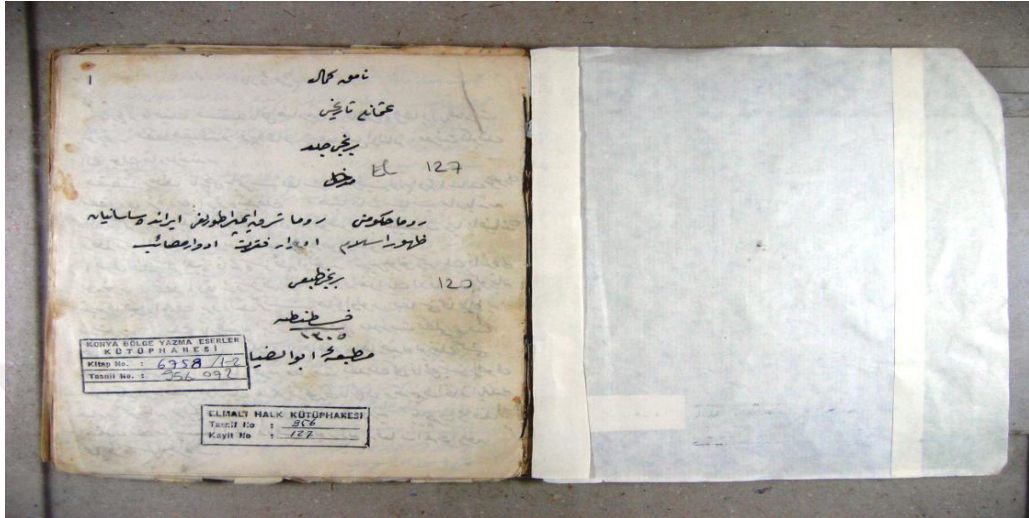 ١
نامق كمال
عثمانلى تاريخى
برنجى جلد
مدخل
EL 127
روما حكومتى روما شرق ايمپراطورلغى ايرانده ساسانيان
ظهور اسلام ادوار فترت ادوار مصائب
برنجى طبعى
120
قسطنطنيه
١٣٠٥
مطبعۀ ابوالضيا
KONYA BÖLGE YAZMA ESERLER
KÜTÜPHANESİ
Kitap No. : 6758/1-2
Tasnif No. : 956 092
ELMALI HALK KÜTÜPHANESİ
Tasnif No : 956
Kayıt No : 127